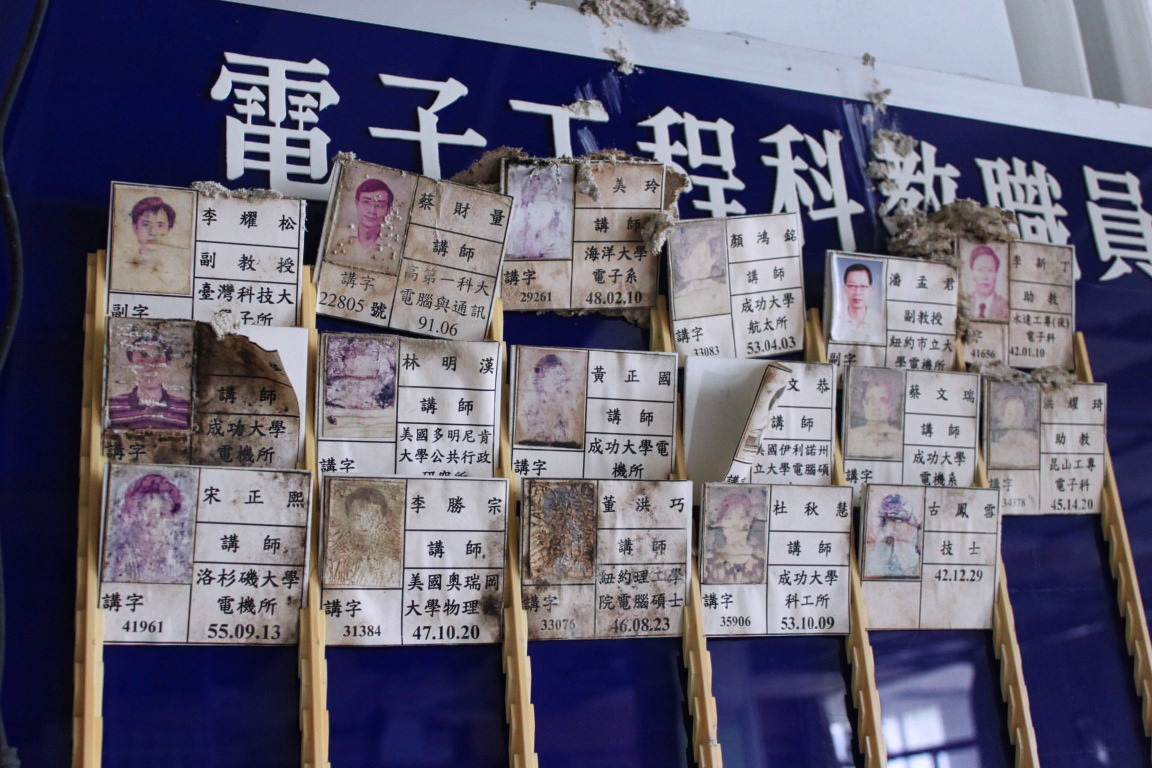 電子工程科教職員
李耀松
副教授
臺灣科技大
副字
蔡財量
講師
高第一科大
電腦與通訊
講字
22805號
91.06
美玲
講師
海洋大學
電子系
講字
29261
48.02.10
顏鴻銘
講師
成功大學
航太所
講字
33083
53.04.03
潘孟君
副教授
紐約市立大
學電機所
副字
李新丁
助教
永達工專(夜)
電子科
41656
42.01.10
講師
成功大學
電機所
講字
林明漢
講師
美國多明尼肯
大學公共行政
研究所
講字
黃正國
講師
成功大學電
機所
講字
文恭
講師
國伊利諾州
立大學電腦碩
蔡文瑞
講師
成功大學
電機系
講字
洪耀琦
助教
崑山工專
電子科
34378
45.14.20
宋正熙
講師
洛杉磯大學
電機所
講字
41961
55.09.13
李勝宗
講師
美國奧瑞岡
大學物理
講字
31384
47.10.20
董洪巧
講師
紐約理工學
院電腦碩士
講字
33076
46.08.23
杜秋慧
講師
成功大學
科工所
講字
35906
53.10.09
古鳳雪
技士
42.12.29